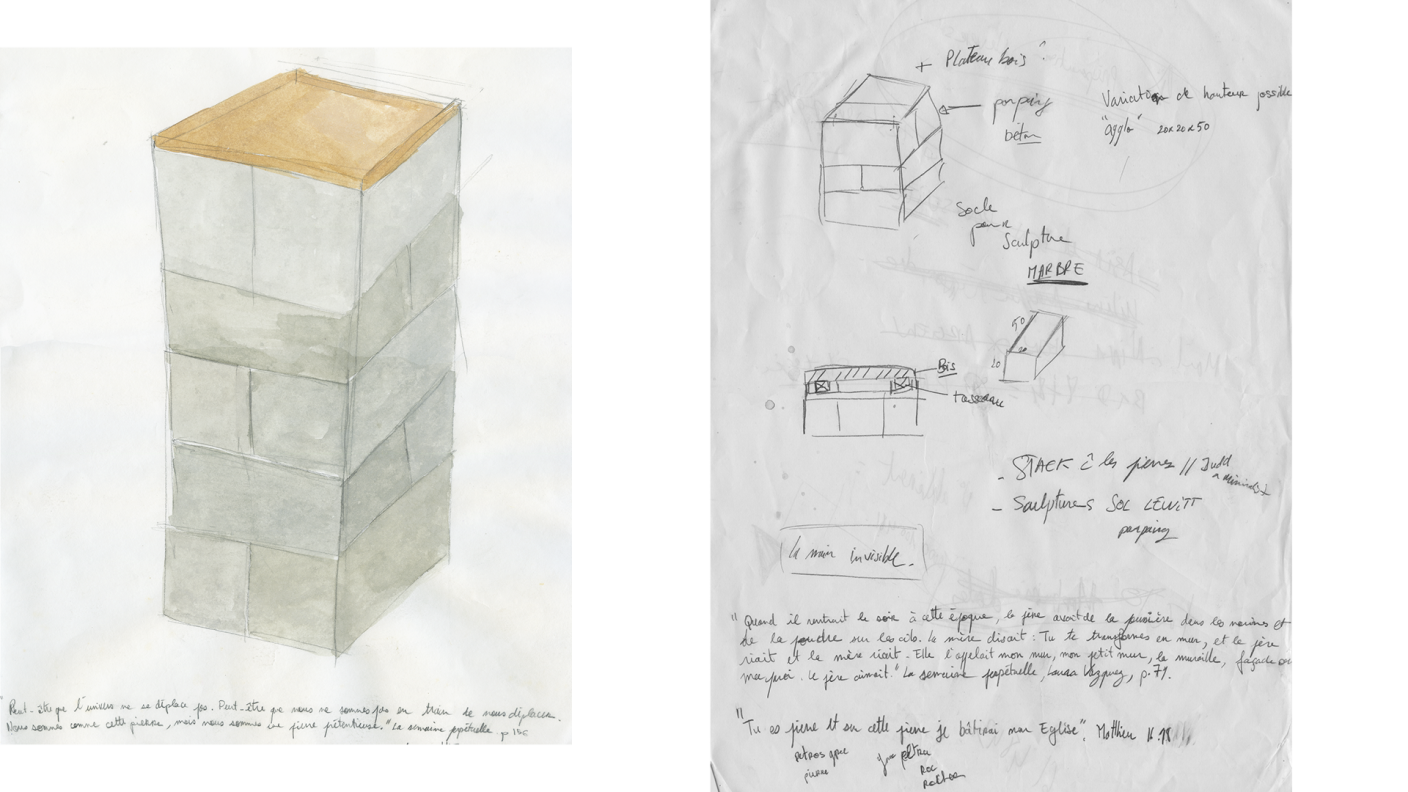 "Peut-être que l'univers ne se déplace pas. Peut-être que nous ne sommes pas en train de nous déplacer.
Nous sommes comme cette pierre, mais nous sommes une pierre prétentieuse." La semaine perpétuelle p
+ Plateau bois ?
parping
béton
Variation de hauteur possible
"agglo" 20x20x50
Socle
pour
Sculpture
MARBRE
50
20
20
Bois
tasseau
- STACK les pierres // Judd
- Sculptures SOL LEWITT
parping
la main invisible.
"Quand il rentrait le soir à cette époque, le père avait de la poussière dans les narines et
de la poudre sur les cils. La mère disait : Tu te transformes en mur, et le père
riait et la mère riait. Elle l'appelait mon mur, mon petit mur, la muraille, façade
ma paroi. Le père aimait." La semaine perpétuelle, Laura Vazquez, p.79.
"Tu es pierre et sur cette pierre je bâtirai mon Eglise", Matthieu 16.18
petros grec
pierre
petra
Roc
Rocher